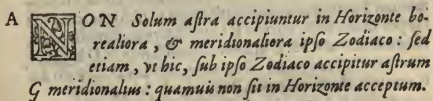 A NON Solum astra accipiuntur in Horizonte bo-
realiora, & meridionaliora ipso Zodiaco: sed
etiam, vt hic, sub ipso Zodiaco accipitur astrum
G meridionalius: quamuis non sit in Horizonte acceptum.